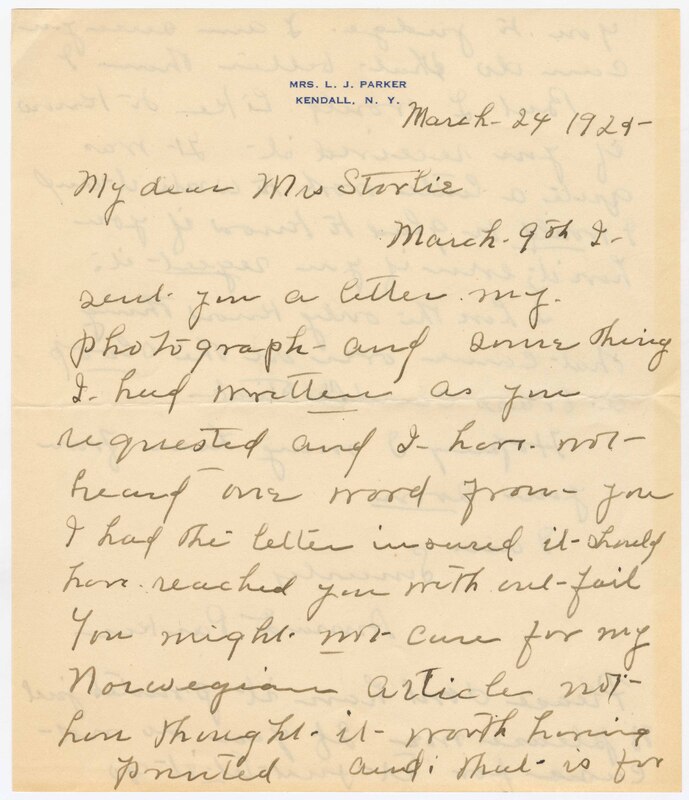 MRS. L. J. PARKER
KENDALL, N. Y.
March 24 1925
My dear Mrs Storlie
March 9th I
sent you a letter my
photograph and some thing
I had written as you
requested and I have not
heard one word from you
I had the letter insured it should
have reached you with out fail
You might not care for my
Norwegian Article not
have thought it worth having
printed and that is for